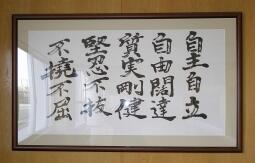 自主自立
自由闊達
質実剛健
堅忍不抜
不撓不屈